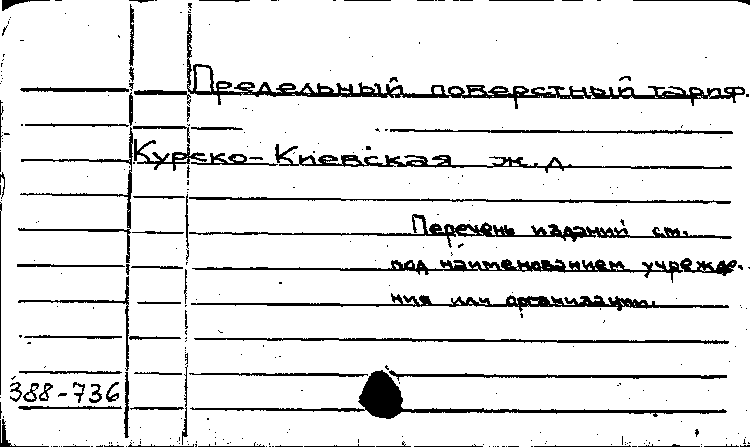 Предельный поверстный тариф.
Курско-Киевская ж.д.
Перечень изданий см.
под наименованием учрежде-
ния или организации.
388-736